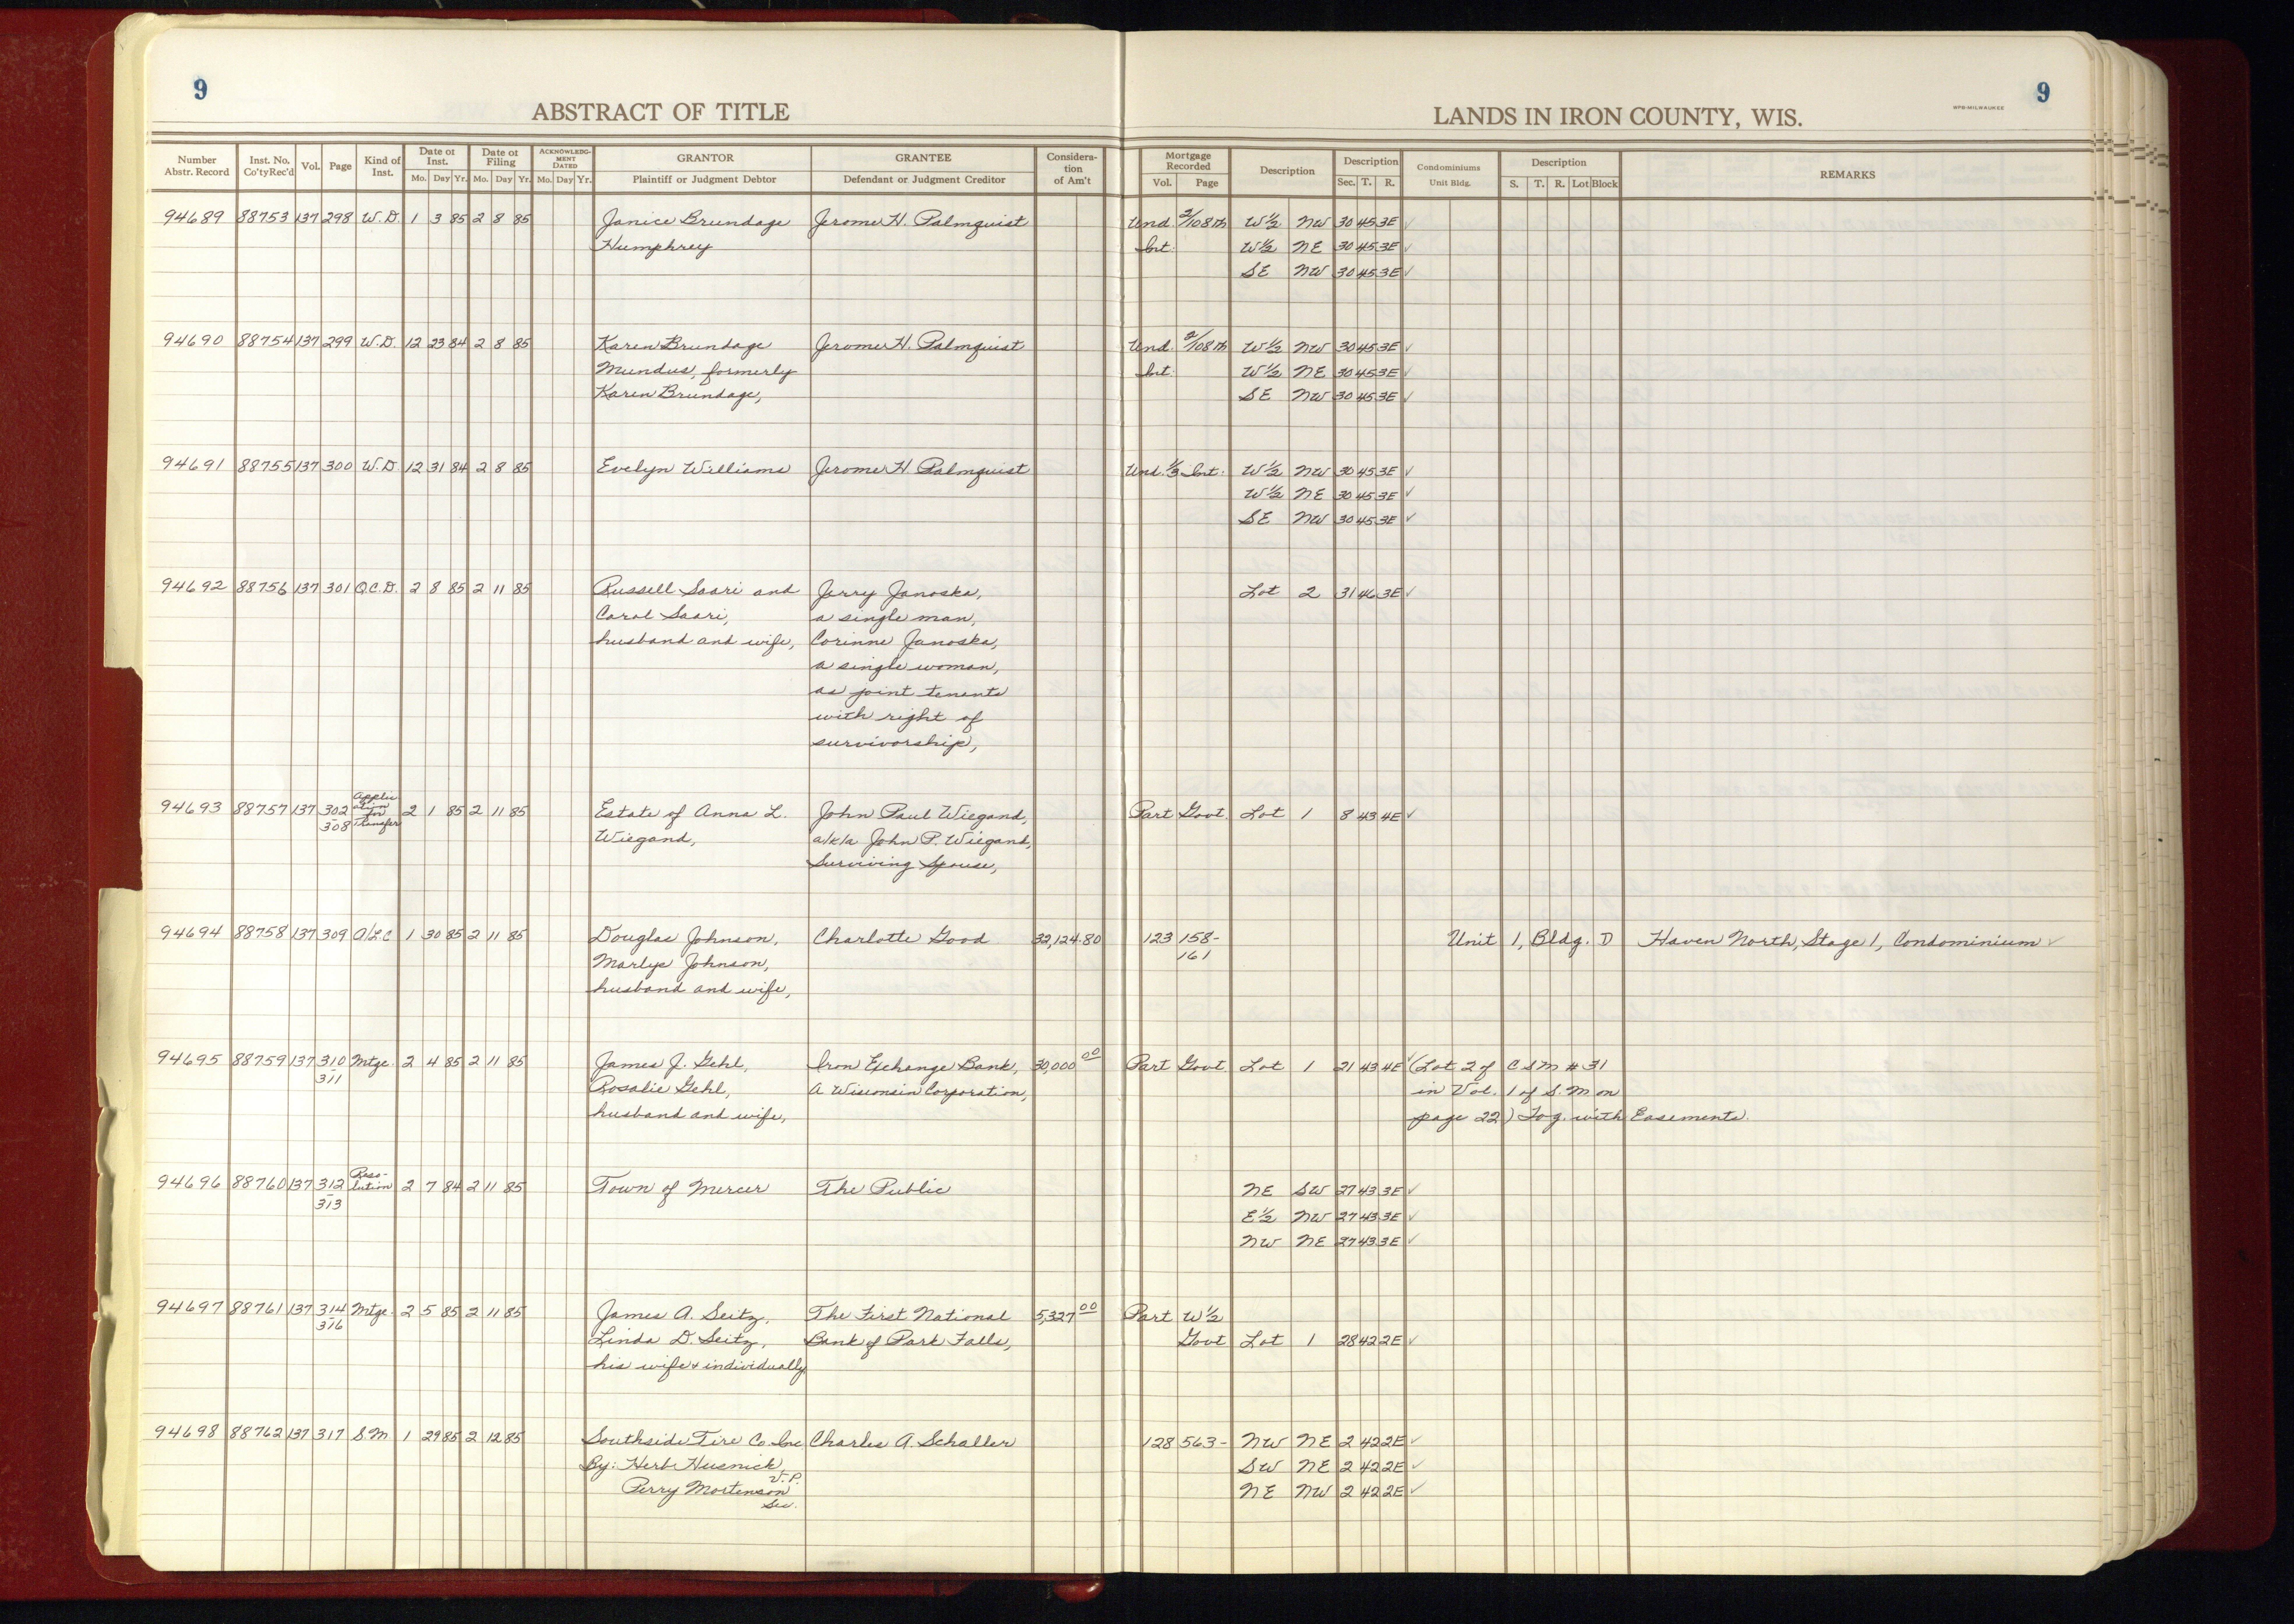 9
9
ABSTRACT OF TITLE
LANDS IN IRON COUNTY, WIS.
WPB-MILWAUKEE
Number Abstr. Record Inst. No. Co'ty Rec'd Vol. Page Kind of Inst. Date of Inst. Mo. Day Yr. Date of Filing Mo. Day Yr. ACKNOWLEDGMENT DATED Mo. Day Yr. GRANTOR Plaintiff or Judgment Debtor GRANTEE Defendant or Judgment Creditor Consideration of Am't Mortgage Recorded Vol. Page Description Description Sec. T. R. Condominiums Unit Bldg. Description S. T. R. Lot Block REMARKS
94689 88753 137 298 W.D. 1 3 85 2 8 85 Janice Brundage Jerome H. Palmquist Und. 2/108th W½ NW 30 45 3E ✓
Humphrey Int. W½ NE 30 45 3E ✓
SE NW 30 45 3E ✓
94690 88754 137 299 W.D. 12 23 84 2 8 85 Karen Brundage Jerome H. Palmquist Und. 2/108th W½ NW 30 45 3E ✓
Mundus, formerly Int. W½ NE 30 45 3E ✓
Karen Brundage, SE NW 30 45 3E ✓
94691 88755 137 300 W.D. 12 31 84 2 8 85 Evelyn Williams Jerome H. Palmquist Und. ⅓ Int. W½ NW 30 45 3E ✓
W½ NE 30 45 3E ✓
SE NW 30 45 3E ✓
94692 88756 137 301 Q.C.D. 2 8 85 2 11 85 Russell Saari and Jerry Janoska, Lot 2 31 46 3E ✓
Carol Saari, a single man,
husband and wife, Corinne Janoska,
a single woman,
as joint tenants
with right of
survivorship,
94693 88757 137 302-308 Application for Transfer 2 1 85 2 11 85 Estate of Anna L. John Paul Wiegand, Part Govt. Lot 1 8 43 4E ✓
Wiegand, a/k/a John P. Wiegand,
Surviving Spouse,
94694 88758 137 309 A/L.C 1 30 85 2 11 85 Douglas Johnson, Charlotte Good 32,124.80 123 158- Unit 1, Bldg. D Haven North, Stage 1, Condominium ✓
Marlys Johnson, 161
husband and wife,
94695 88759 137 310-311 Mtge. 2 4 85 2 11 85 James J. Gehl, Iron Exchange Bank, 30,000.00 Part Govt. Lot 1 21 43 4E ✓ (Lot 2 of CSM #31
Rosalie Gehl, A Wisconsin Corporation, in Vol. 1 of S.M on
husband and wife, page 22) Tog. with Easements.
94696 88760 137 312-313 Reso-lution 2 7 84 2 11 85 Town of Mercer The Public NE SW 27 43 3E ✓
E½ NW 27 43 3E ✓
NW NE 27 43 3E ✓
94697 88761 137 314-316 Mtge. 2 5 85 2 11 85 James A. Seitz, The First National 5,327.00 Part W½
Linda D. Seitz, Bank of Park Falls, Govt Lot 1 28 42 2E ✓
his wife & individually,
94698 88762 137 317 S.M 1 29 85 2 12 85 Southside Tire Co. Inc Charles A. Schaller 128 563- NW NE 2 42 2E ✓
By: Herb Husnick, V.P. SW NE 2 42 2E ✓
Perry Mortenson Sec. NE NW 2 42 2E ✓